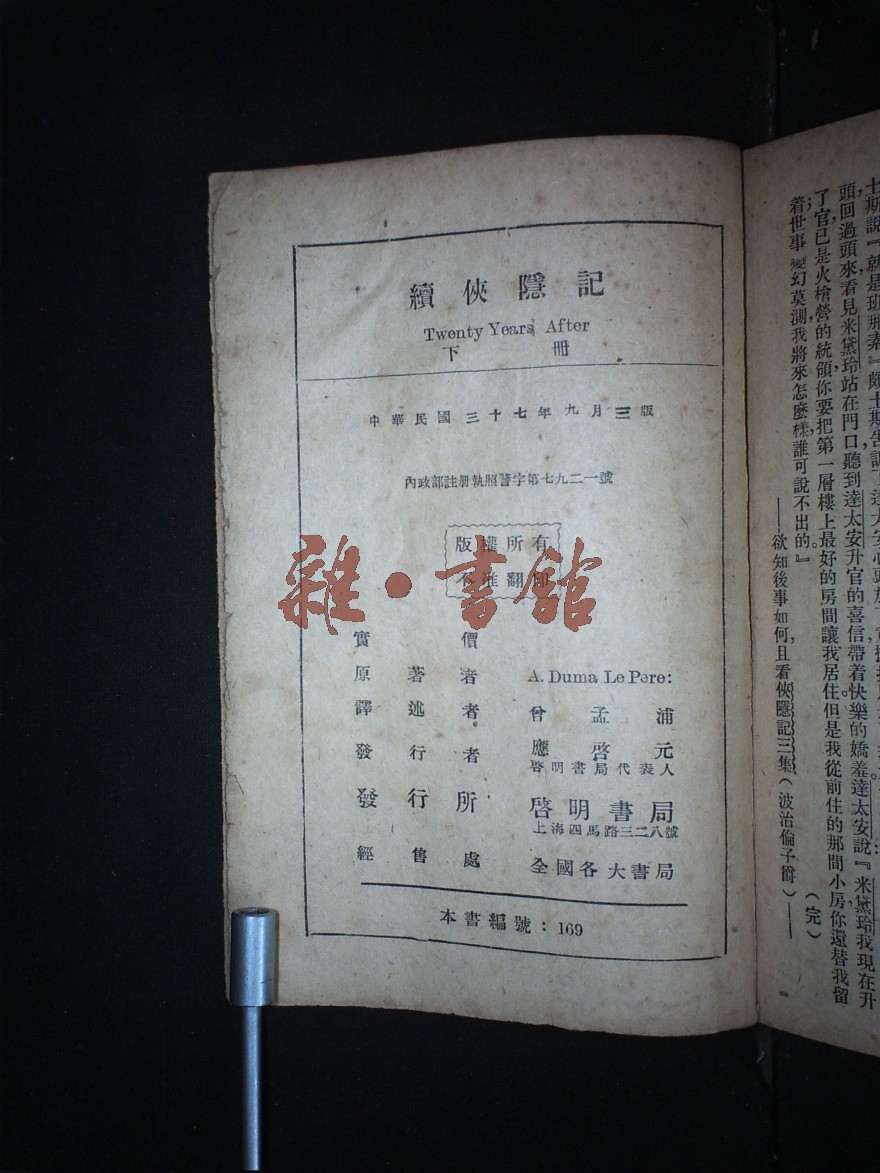 續俠隱記
Twenty Years After
下冊
中華民國三十七年九月三版
內政部註册執照警字第七九二一號
版權所有
不准翻印
雜·書館
實價
原著者 A. Duma Le Pere:
譯述者 曾孟浦
發行者 應啓元
啓明書局代表人
發行所 啓明書局
上海四馬路三二八號
經售處 全國各大書局
本書編號：169
士斯說『就是班那素』頗士斯告訴了達太安心頭放了
頭回過頭來看見米黛玲站在門口聽到達太安升官的喜信帶着快樂的嬌羞達太安說：『米黛玲我現在升
了官已是火槍營的統領你要把第一層樓上最好的房間讓我居住但是我從前住的那間小房你還替我留
着世事變幻莫測我將來怎麼樣誰可說不出的。』
——欲知後事如何，且看俠隱記三集（波治倫子爵）——
（完）